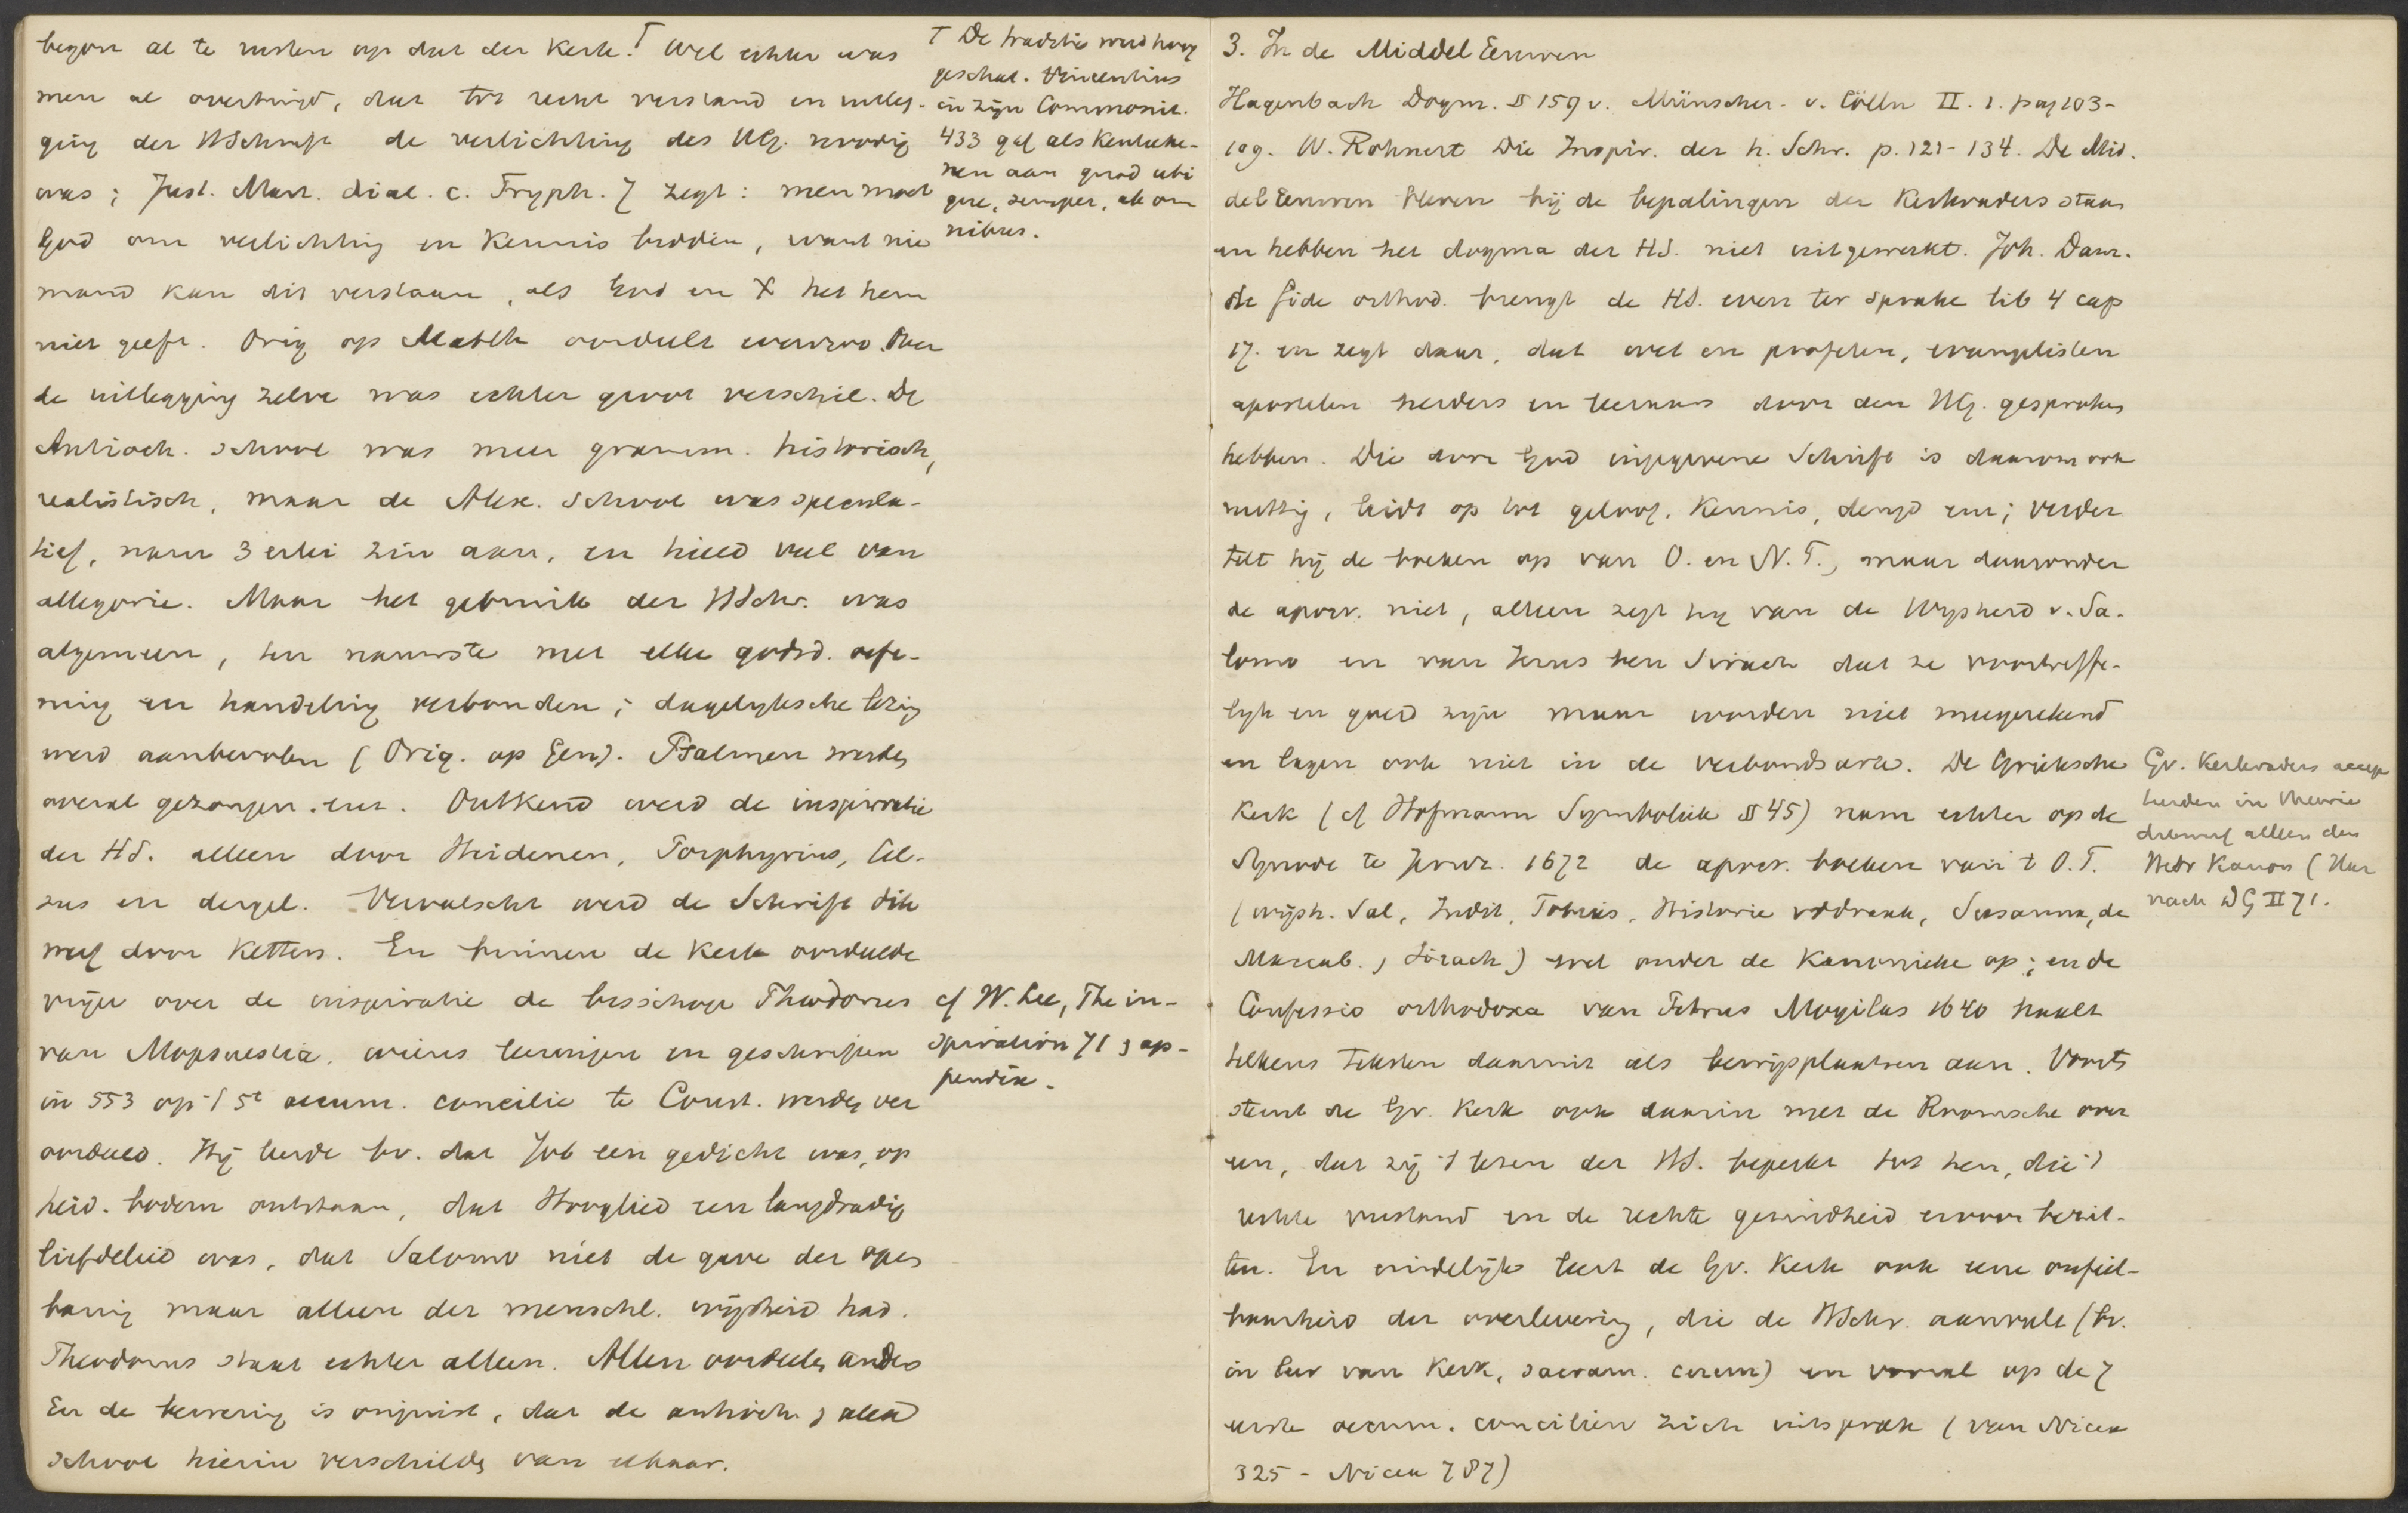 begon al te rusten op dat der Kerk. T Wel echter was
men al overtuigd, dat tot recht verstand en uitleg-
ging der HSchrift de verlichting des HG. noodig
was; Just. Mart. dial. c. Tryph. 7 zegt: men moet
God om verlichting en Kennis bidden, want nie
mand kan dit verstaan, als God en X het hem
niet geeft. Orig op Matth oordeelt evenzoo. Over
de uitlegging zelve was echter groot verschil. De
Antioch. school was meer gramm. historisch,
realistisch, maar de Alex. School was specula-
tief, nam 3 erlei zin aan, en hield veel van
allegorie. Maar het gebruik der HSchr. was
algemeen, ten nauwste met elke godsd. oefe-
ning en handeling verbonden; dagelyksche lezing
werd aanbevolen (Orig. op Gen). Psalmen werden
overal gezongen. enz. Ontkend werd de inspiratie
der HS. alleen door Heidenen, Porphyrius, Cel-
sus en dergel. Vervalscht werd de Schrift dik
werf door Ketters. En binnen de Kerk oordeelde
vrijer over de inspiratie de bisschop Theodorus
van Mopsuestia, wiens leeringen en geschriften
in 553 op 't 5e oecum. concilie te Const. werden ver
oordeeld. Hij leerde bv. dat Job een gedicht was, op
heid. bodem ontstaan, dat Hooglied een langdradig
liefdelied was, dat Salomo niet de gave der open
baring maar alleen der menschl. wijsheid had.
Theodorus staat echter alleen. Allen oordeelen anders
En de bewering is onjuist, dat de antioch. & alexd
school hierin verschilden van elkaar.
T De traditie werd hoog
geschat. Vincentius
in zijn Commonit.
433 gaf als Kenteeke-
nen aan quod ubi
que, semper, ab om
nibus.
cf W. Lee, The in-
spiration 71 & ap-
pendix.
3. In de Middel Eeuwen
Hagenbach Dogm. § 159 v. Münscher - v. Cölln II. 1. pag 103-
109. W. Rohnert Die Inspir. der h. Schr. p. 121-134. De Mid.
del Eeuwen bleven bij de bepalingen der Kerkvaders staan
en hebben het dogma der HS. niet uitgewerkt. Joh. Dam.
de fide orthod. brengt de HS. even ter sprake lib 4 cap
17. en zegt daar, dat wet en profeten, evangelisten
apostelen herders en leeraars door den HG. gesproken
hebben. Die door God ingegevene Schrift is daarom ook
nuttig, leidt op tot geloof, Kennis, deugd enz; verder
telt hij de boeken op van O. en N. T., maar daaronder
de apocr. niet, alleen zegt hij van de Wysheid v. Sa-
lomo en van Jezus ben Sirach dat ze voortreffe-
lyk en goed zijn maar worden niet meegerekend
en lagen ook niet in de verbondsark. De Grieksche
Kerk (cf Hofmann Symboliek § 45) nam echter op de
Synode te Jeruz. 1672 de apocr. boeken van 't O. T.
(wijsh. Sal, Judit, Tobias, Historie v d draak, Susanna, de
Maccab., Sirach) wel onder de Kanonieke op; en de
Confessio orthodoxa van Petrus Mogilas 1640 haalt
telkens teksten daaruit als bewijsplaatsen aan. Voorts
stemt de Gr. Kerk ook daarin met de Roomsche over
een, dat zij 't lezen der HS. beperkt tot hen, die 't
rechte verstand en de rechte gezindheid ervoor bezit-
ten. En eindelijk leert de Gr. Kerk ook eene onfeil-
baarheid der overlevering, die de HSchr. aanvult (bv.
in leer van Kerk, sacram. cerem) en vooral op de 7
eerste oecum. conciliën zich uitsprak (van Nicea
325 - Nicea 787)
Gr. Kerkvaders accep
teerden in theorie
dikwerf alleen den
Hebr Kanon (Har
nack DG II 71.